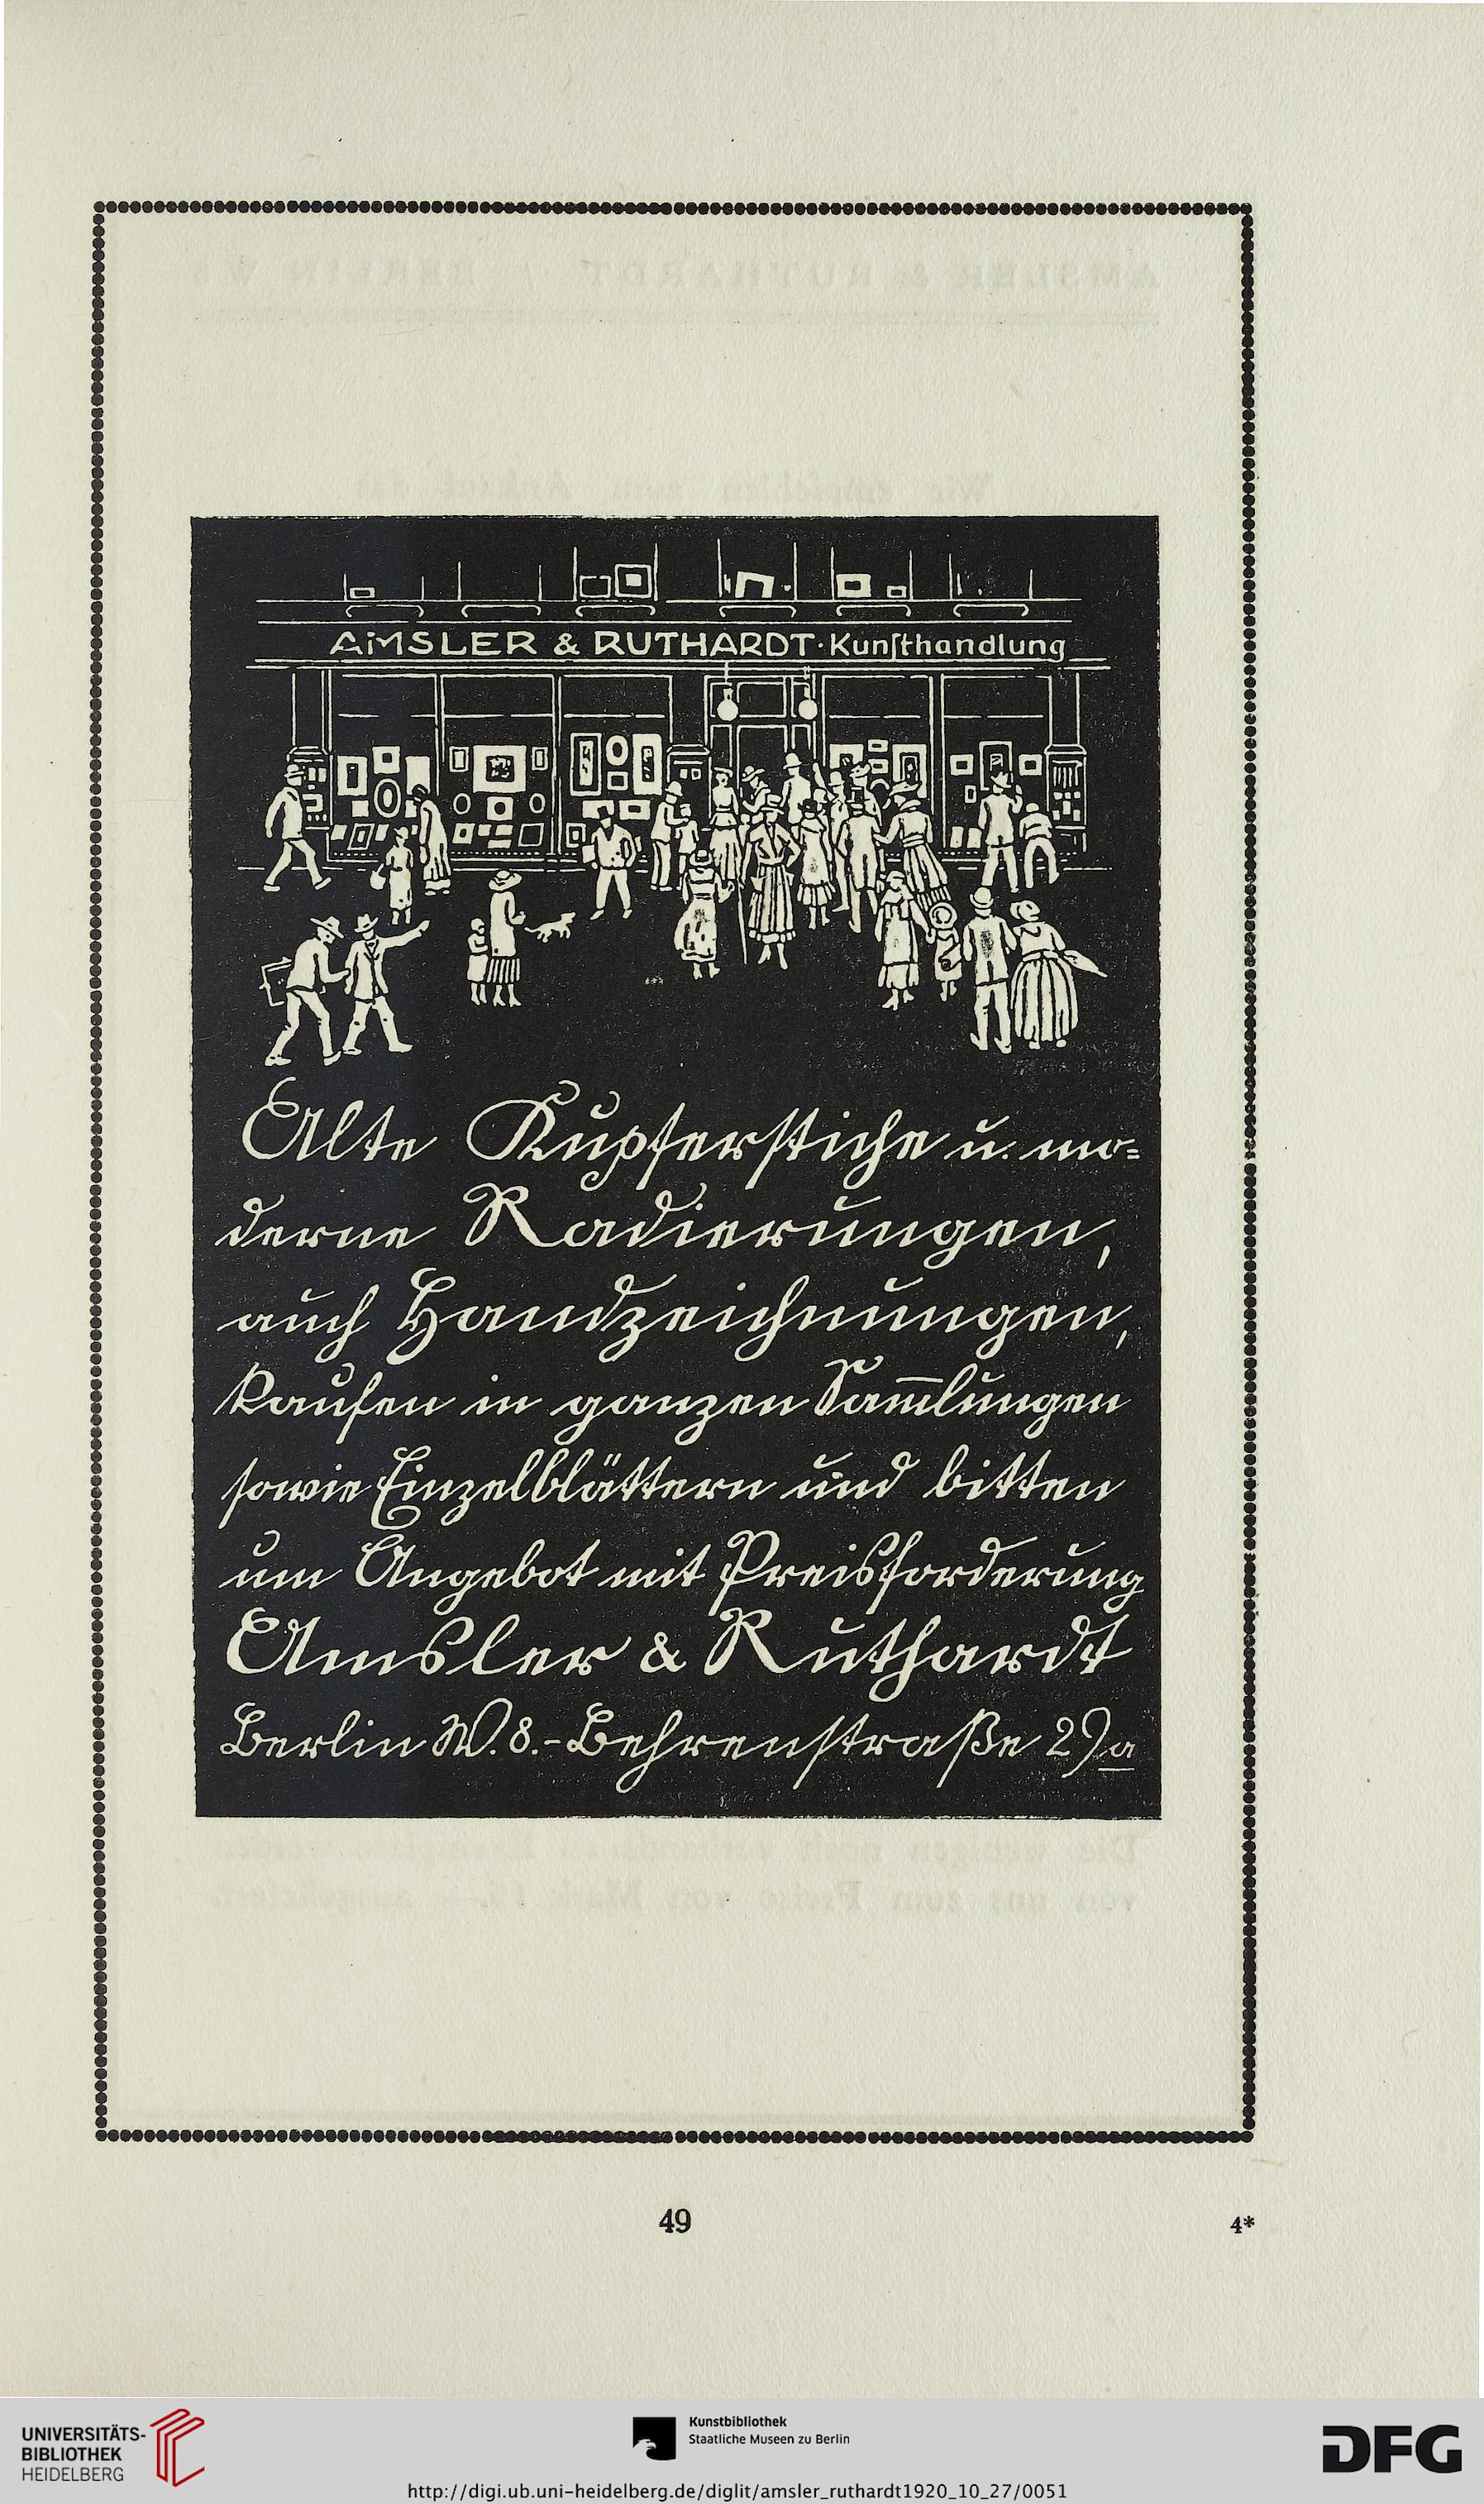 AMSLER & RUTHARDT · Kunſthandlung
Alte Kupferstiche u. mo=
derne Radierungen,
auch Handzeichnungen,
kaufen in ganzen Sam̅lungen
sowie Einzelblättern und bitten
um Angebot mit Preisforderung
Amsler & Ruthardt
Berlin W. 8. - Behrenstraße 29a
49
4*
UNIVERSITÄTS-
BIBLIOTHEK
HEIDELBERG
Kunstbibliothek
Staatliche Museen zu Berlin
DFG
http://digi.ub.uni-heidelberg.de/diglit/amsler_ruthardt1920_10_27/0051